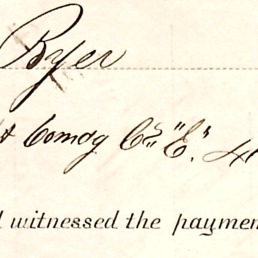 Byer
t Comdg Co. "E". 4
d witnessed the paymen